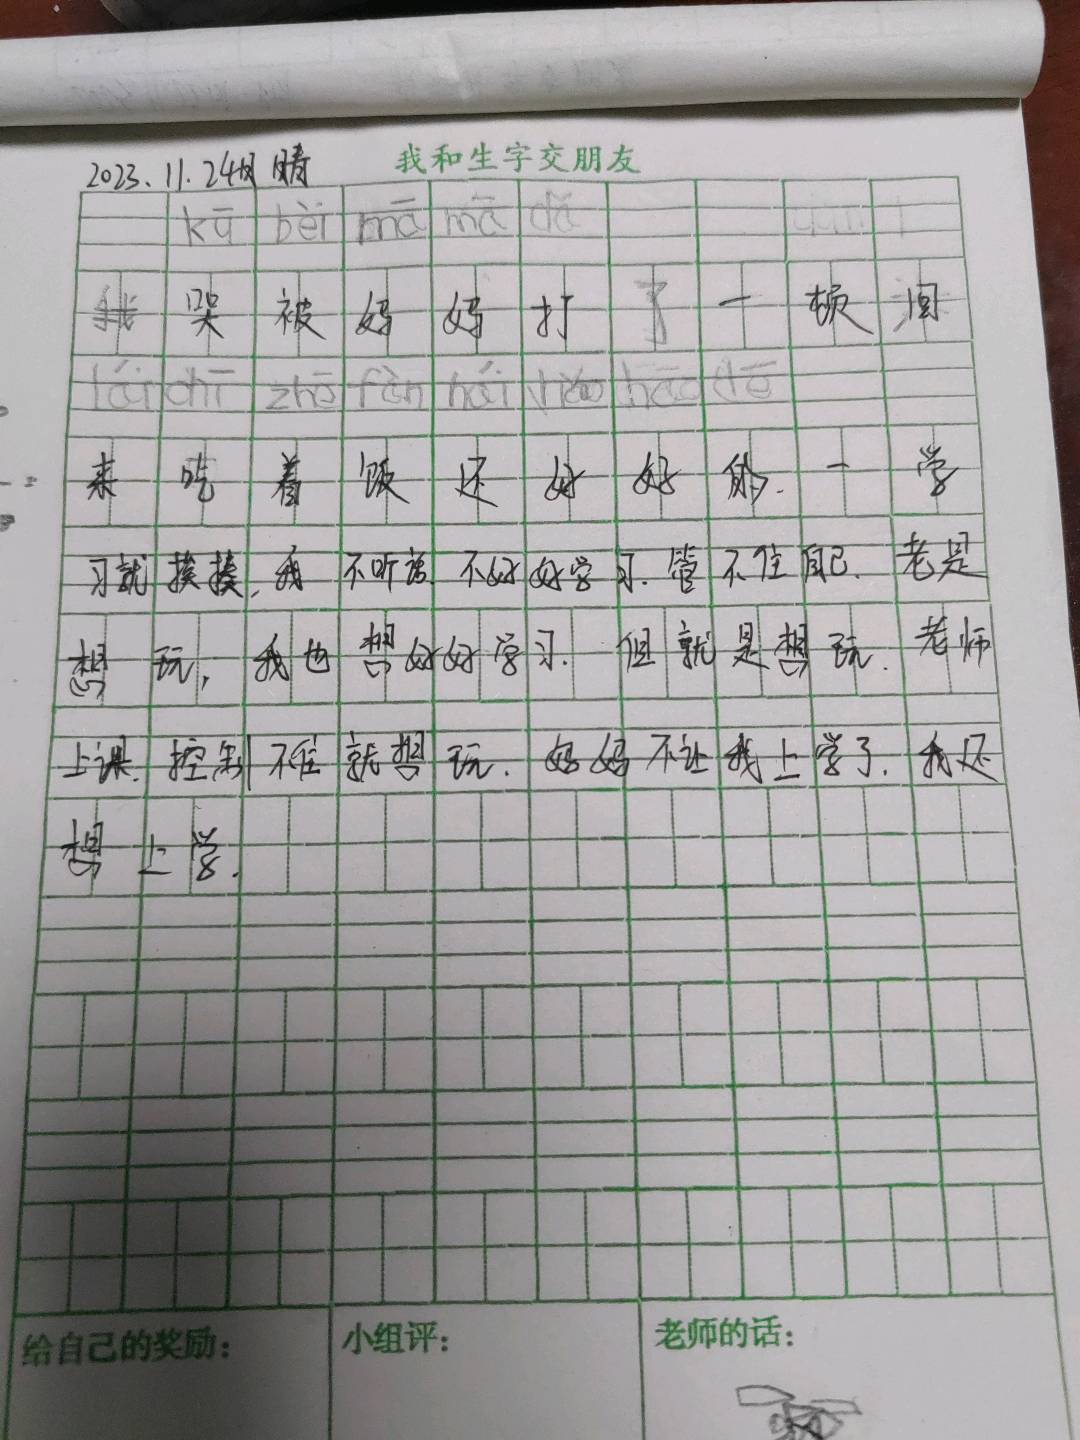 我和生字交朋友
2023.11.24 晴
kū bèi mā mā dǎ
我哭被妈妈打了一顿 回
lái chī zhe fàn hái hǎo
来吃着饭还好好的.一学
习就挨揍,我不听话.不好好学习.管不住自己.老是
想玩,我也想好好学习.但就是想玩.老师
上课.控制不住就想玩.妈妈不让我上学了.我还
想上学.
给自己的奖励:
小组评:
老师的话: